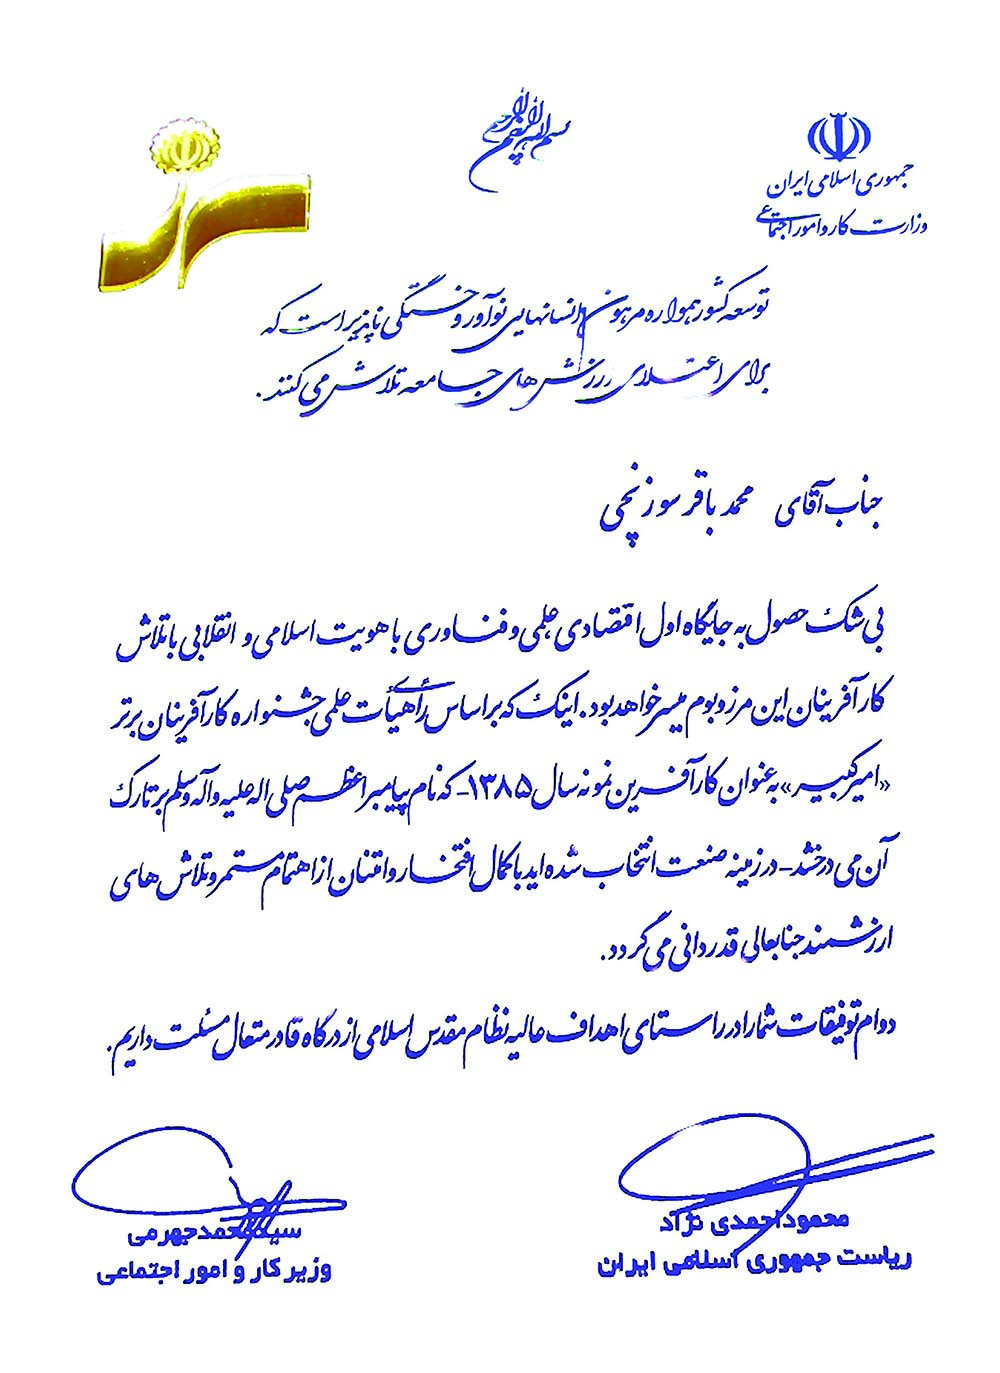 بسم الله الرحمن الرحیم
جمهوری اسلامی ایران
وزارت کار و امور اجتماعی
توسعه کشور همواره مرهون انسانهایی نوآور و خستگی ناپذیر است که
برای اعتلای ارزش های جامعه تلاش می کنند.
جناب آقای محمد باقر سوزنچی
بی شک حصول به جایگاه اول اقتصادی، علمی و فناوری با هویت اسلامی و انقلابی با تلاش
کارآفرینان این مرز و بوم میسر خواهد بود. اینک که بر اساس رأی هیأت علمی جشنواره کارآفرینان برتر
«امیرکبیر» به عنوان کارآفرین نمونه سال ۱۳۸۵- که نام پیامبر اعظم صلی اله علیه و آله وسلم بر تارک
آن می درخشد- در زمینه صنعت انتخاب شده اید با کمال افتخار و امتنان از اهتمام مستمر و تلاش های
ارزشمند جنابعالی قدردانی می گردد.
دوام توفیقات شما را در راستای اهداف عالیه نظام مقدس اسلامی از درگاه قادر متعال مسئلت داریم.
محمود احمدی نژاد
ریاست جمهوری اسلامی ایران
سید محمد جهرمی
وزیر کار و امور اجتماعی